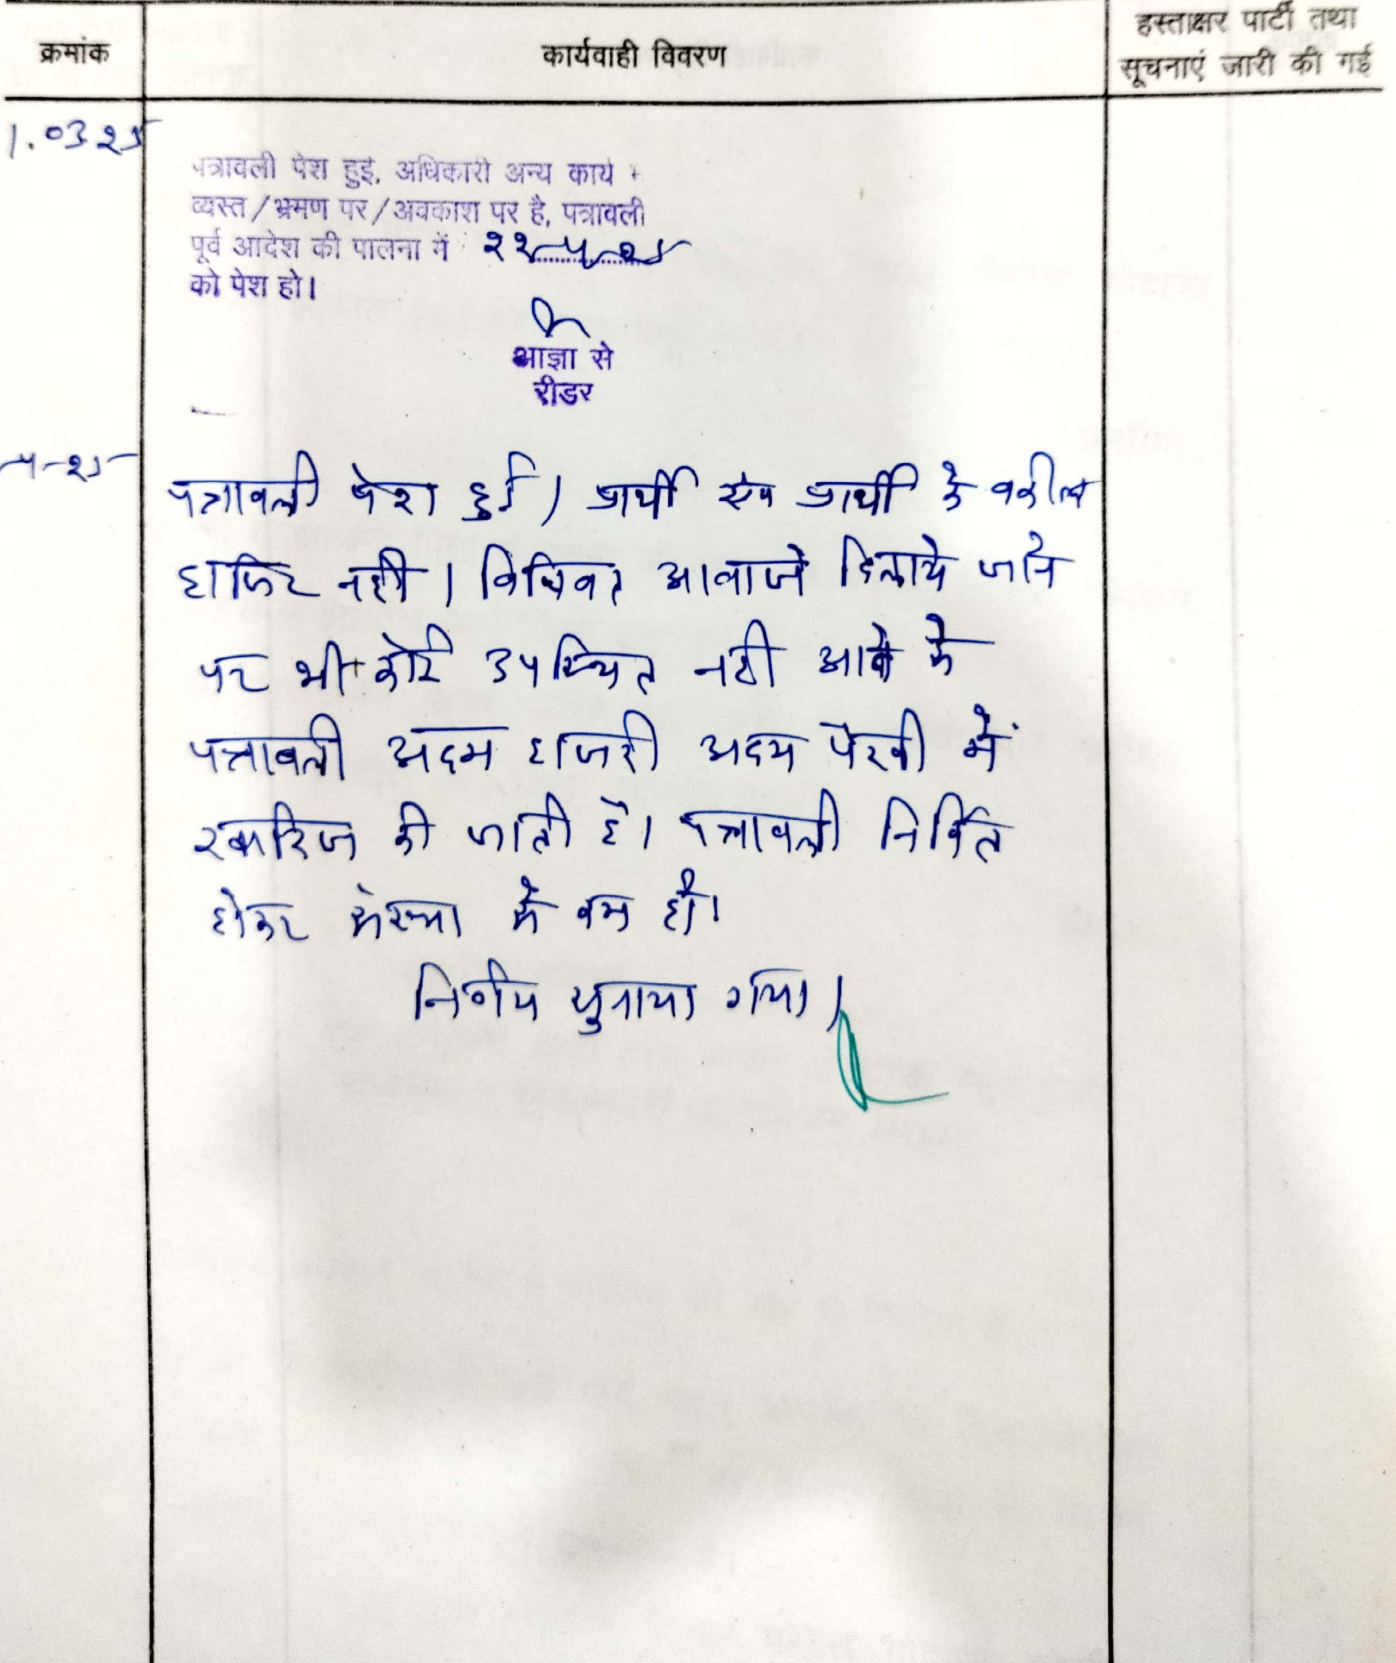 क्रमांक
कार्यवाही विवरण
हस्ताक्षर पार्टी तथा
सूचनाएं जारी की गई
1.03 25
पत्रावली पेश हुई, अधिकारी अन्य कार्य
व्यस्त/भ्रमण पर/अवकाश पर है, पत्रावली
पूर्व आदेश की पालना में
को पेश हो।
आज्ञा से
रीडर
पत्रावली पेश हुई। प्रार्थी एवं प्रार्थी के वकील
हाजिर नही। विधिवत आवाजे दिलाये जाने
पर भी कोई उपस्थित नही आने के
पत्रावली अदम हाजरी अदम पैरवी में
खारिज की जाती है। पत्रावली निर्णित
होकर के कम हो।
निर्णय सुनाया गया।